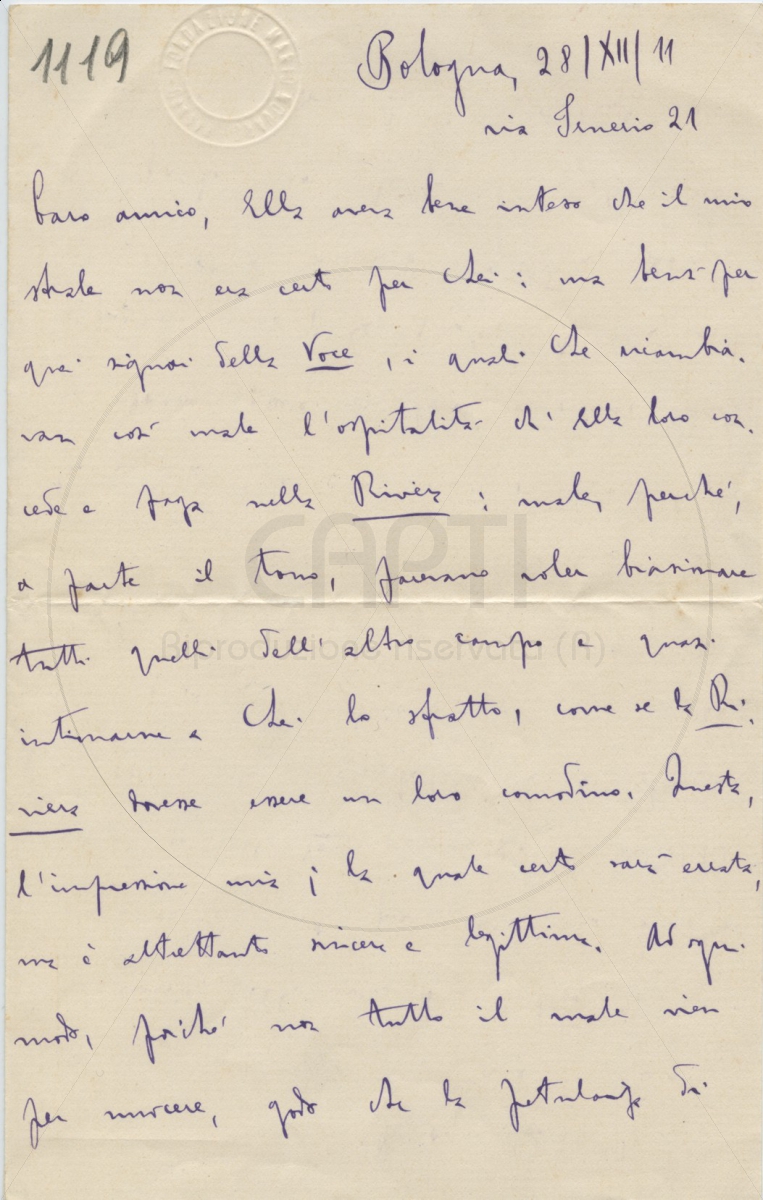 1119
Bologna, 28/XII/11
via Irnerio 21
Caro amico, Ella avrà bene inteso che il mio
strale non era certo per Lei: ma bensì per
quei signori della Voce, i quali Le ricambia-
van così male l'ospitalità ch'Ella loro con-
cede e paga nella Riviera; male, perché,
a parte il tono, parevano voler biasimare
tutti quelli dell'altro campo e quasi
intimarne a Lei lo sfratto, come se la Ri-
viera dovesse essere un loro comodino. Questa,
l'impressione mia; la quale certo sarà errata,
ma è altrettanto sincera e legittima. Ad ogni
modo, poiché non tutto il male vien
per nuocere, godo che la petulanza di
CAPTI
Riproduzione riservata (R)